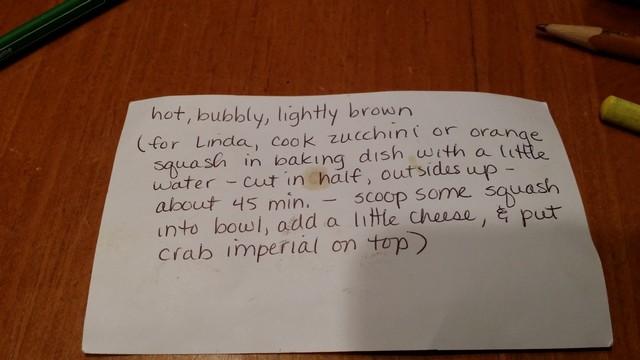 hot, bubbly, lightly brown
(for Linda, cook zucchini or orange
squash in baking dish with a little
water - cut in half, outsides up -
about 45 min. - scoop some squash
into bowl, add a little cheese, & put
crab imperial on top)